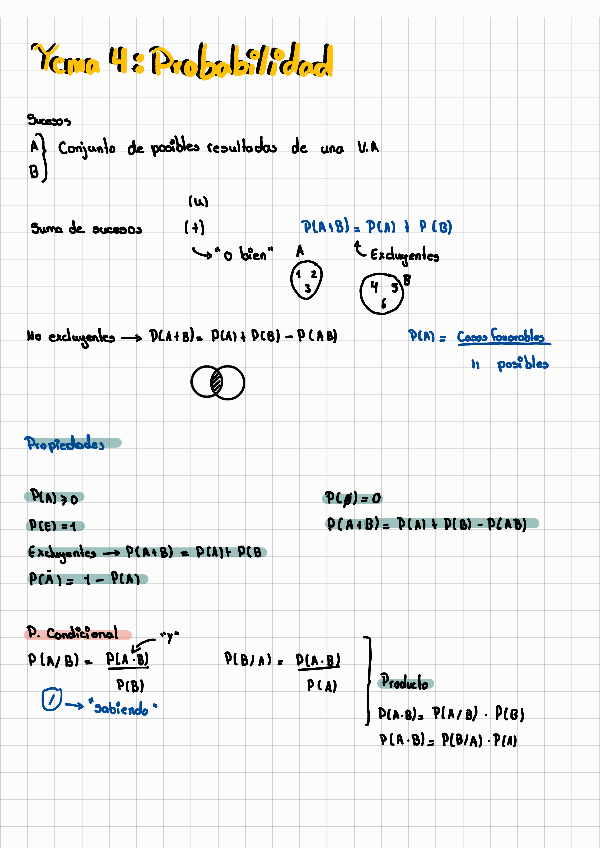 Tema 4: Probabilidad
Sucesos
A
B } Conjunto de posibles resultados de una V.A
(u)
Suma de sucesos (+) P(A+B) = P(A) + P(B)
"o bien" A Excluyentes
1 2 3
4 5 6 B
No excluyentes → P(A+B) = P(A) + P(B) - P(AB) P(A) = Casos favorables
" posibles
Propiedades
P(A) ≥ 0 P(ø) = 0
P(E) = 1 P(A+B) = P(A) + P(B) - P(AB)
Excluyentes → P(A+B) = P(A) + P(B
P(Ā) = 1 - P(A)
P. Condicional "y"
P(A/B) = P(A·B) P(B/A) = P(A·B)
P(B) P(A)
Producto
/ → "sabiendo"
P(A·B) = P(A/B) · P(B)
P(A·B) = P(B/A) · P(A)